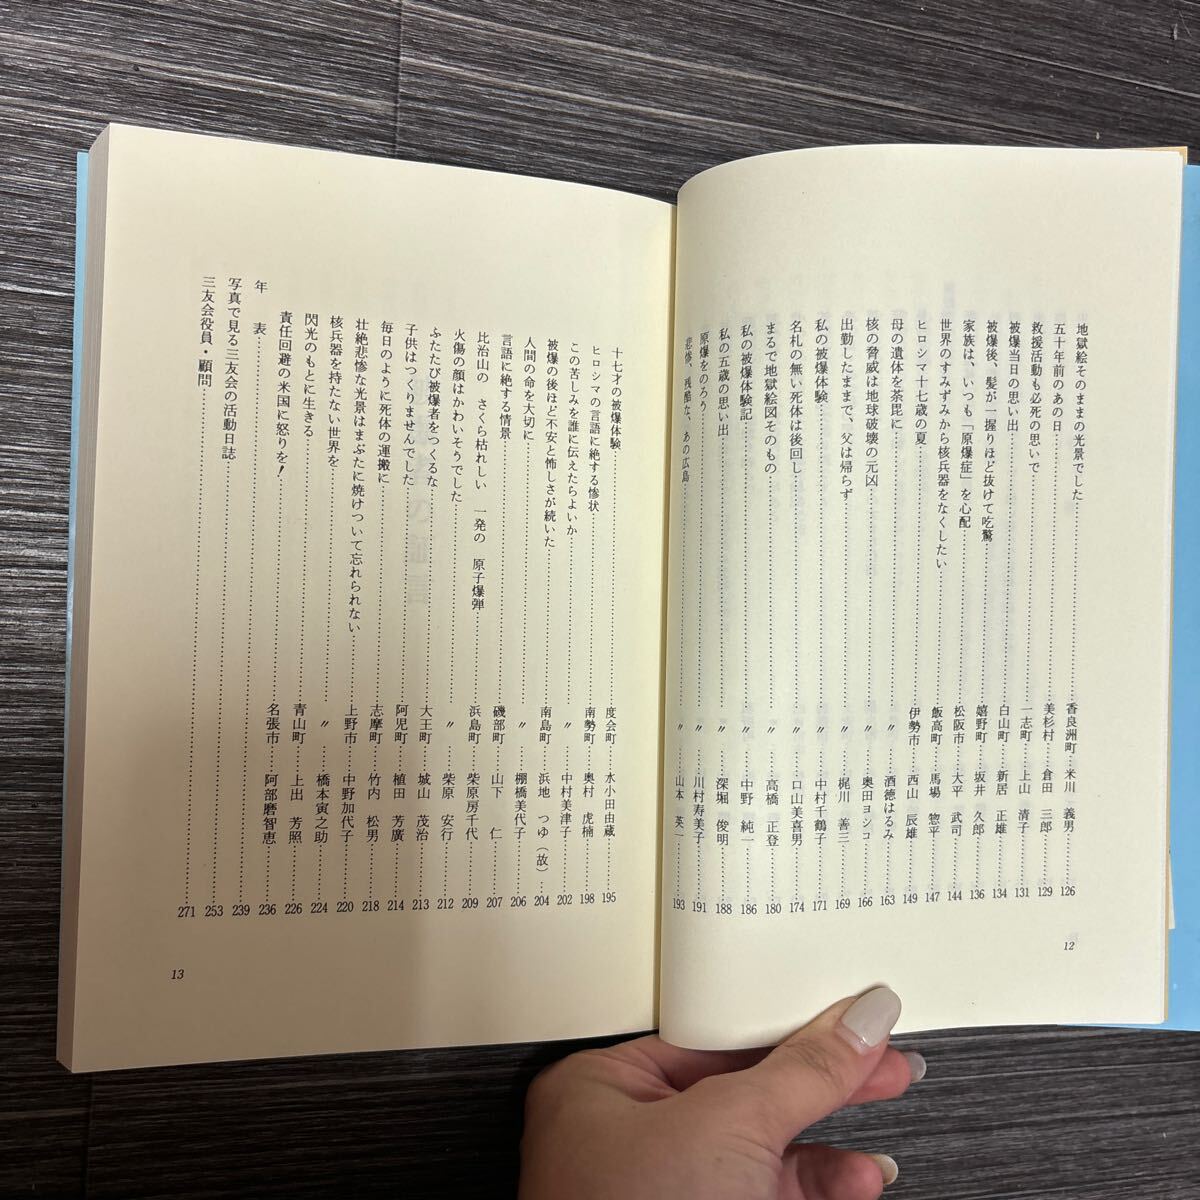 地獄絵そのままの光景でした……香良洲町……米川 義男……126
五十年前のあの日……美杉村……倉田 三郎……129
救援活動も必死の思いで……一志町……上山 清子……131
被爆当日の思い出……白山町……新居 正雄……134
被爆後、髪が一握りほど抜けて吃驚……嬉野町……坂井 久郎……136
家族は、いつも「原爆症」を心配……松阪市……大平 武司……144
世界のすみずみから核兵器をなくしたい……飯高町……馬場 惣平……147
ヒロシマ十七歳の夏……伊勢市……西山 辰雄……149
母の遺体を荼毘に……〃……酒徳はるみ……163
核の脅威は地球破壊の元凶……〃……奥田ヨシコ……166
出勤したままで、父は帰らず……〃……梶川 善三……169
私の被爆体験……〃……中村千鶴子……171
名札の無い死体は後回し……〃……口山美喜男……174
まるで地獄絵図そのもの……〃……高橋 正登……180
私の被爆体験記……〃……中野 純一……186
私の五歳の思い出……〃……深堀 俊明……188
原爆をのろう……〃……川村寿美子……191
悲惨、残酷な、あの広島……〃……山本 英一……193
12
十七才の被爆体験……度会町……水小田由蔵……195
ヒロシマの言語に絶する惨状……南勢町……奥村 虎楠……198
この苦しみを誰に伝えたらよいか……〃……中村美津子……202
被爆の後ほど不安と怖しさが続いた……南島町……浜地 つゆ(故)……204
人間の命を大切に……〃……棚橋美代子……206
言語に絶する情景……磯部町……山下 仁……207
比治山の さくら枯れしい 一発の 原子爆弾……浜島町……柴原房千代……209
火傷の顔はかわいそうでした……〃……柴原 安行……212
ふたたび被爆者をつくるな……大王町……城山 茂治……213
子供はつくりませんでした……阿児町……植田 芳廣……214
毎日のように死体の運搬に……志摩町……竹内 松男……218
壮絶悲惨な光景はまぶたに焼けついて忘れられない……上野市……中野加代子……220
核兵器を持たない世界を……〃……橋本寅之助……224
閃光のもとに生きる……青山町……上出 芳照……226
責任回避の米国に怒りを!……名張市……阿部磨智恵……236
年 表……239
写真で見る三友会の活動日誌……253
三友会役員・顧問……271
13